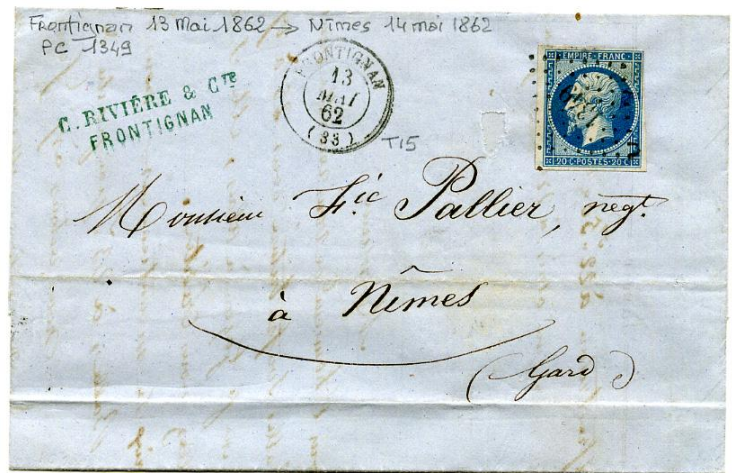 Frontignan 13 Mai 1862 → Nîmes 14 mai 1862
PC 1349
C. RIVIÈRE & Cie
FRONTIGNAN
FRONTIGNAN
13
MAI
62
(33)
T15
EMPIRE FRANC
20 C·POSTES·20 C
Monsieur Fic Pallier, negt.
à Nîmes
(Gard)